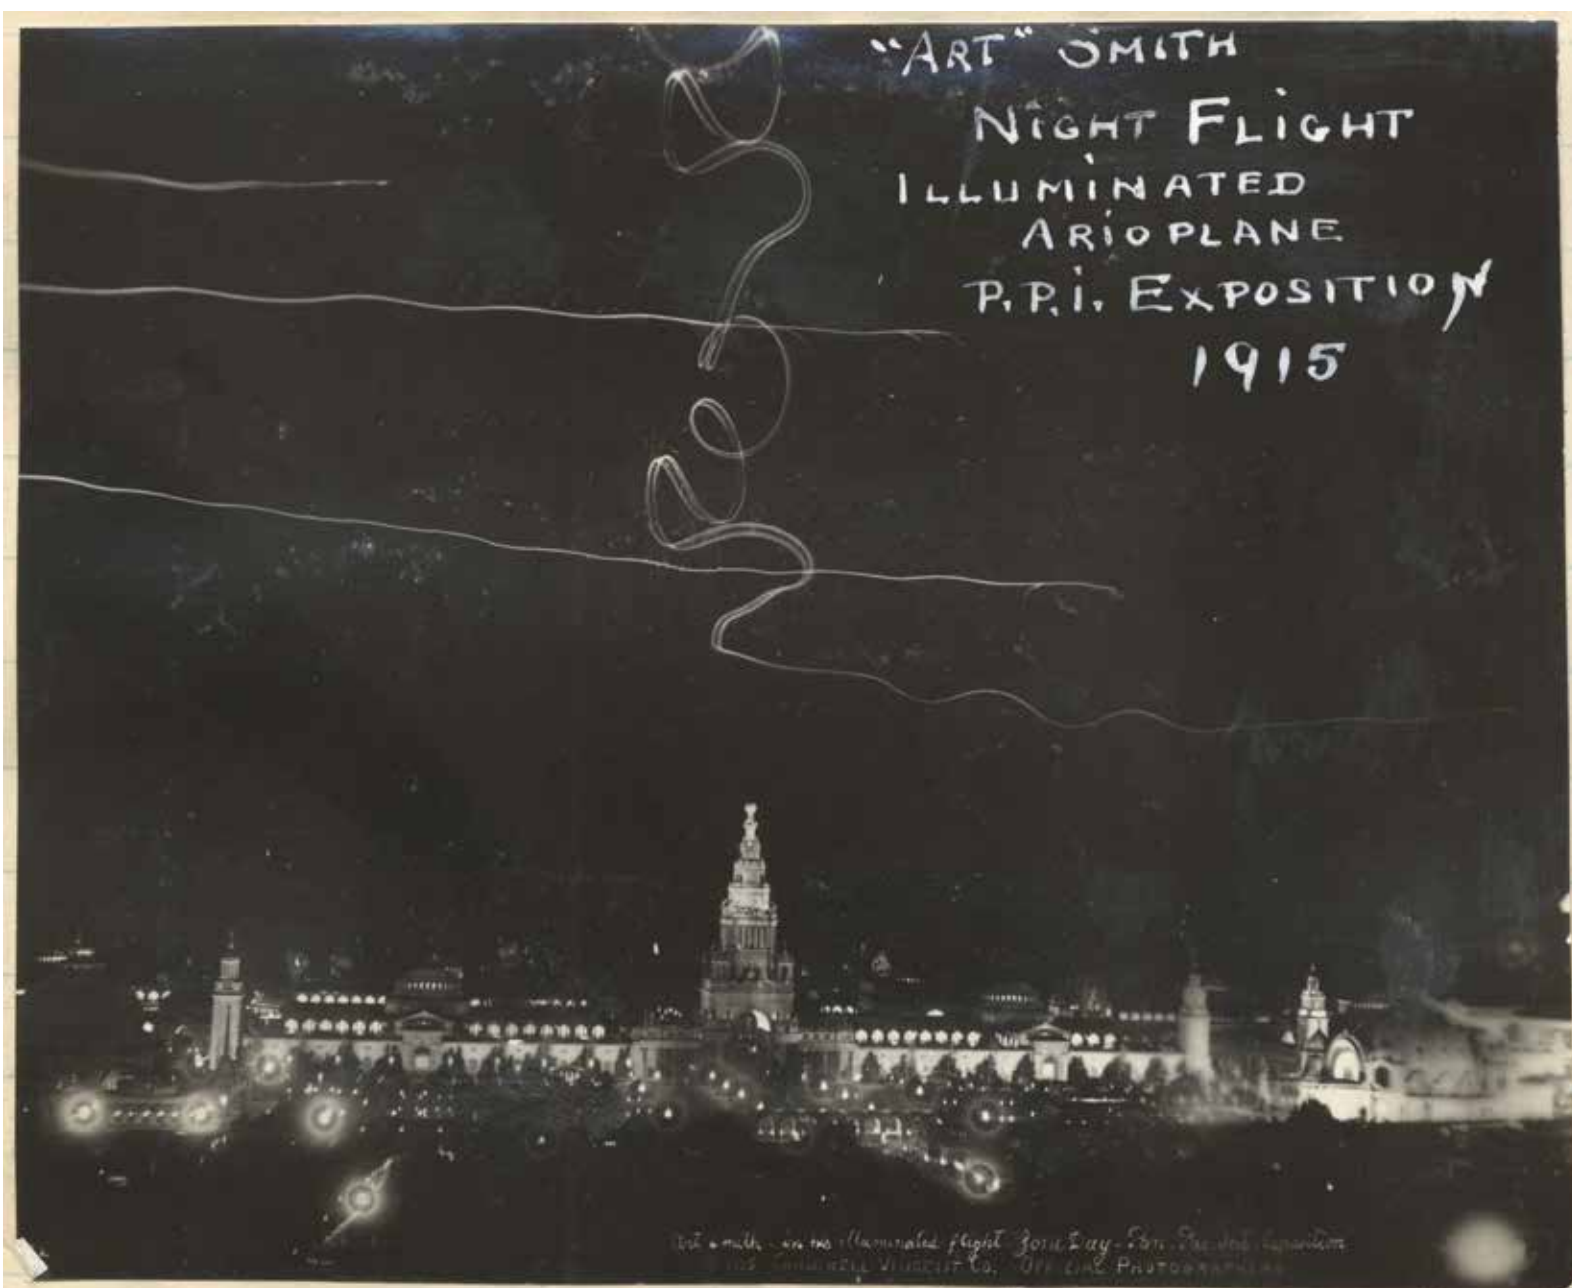 "ART" SMITH
NIGHT FLIGHT
ILLUMINATED
ARIOPLANE
P.P.I. EXPOSITION
1915
Art Smith in his illuminated flight Zone Day - Pan. Pac. Int. Exposition
Co. Official Photographers